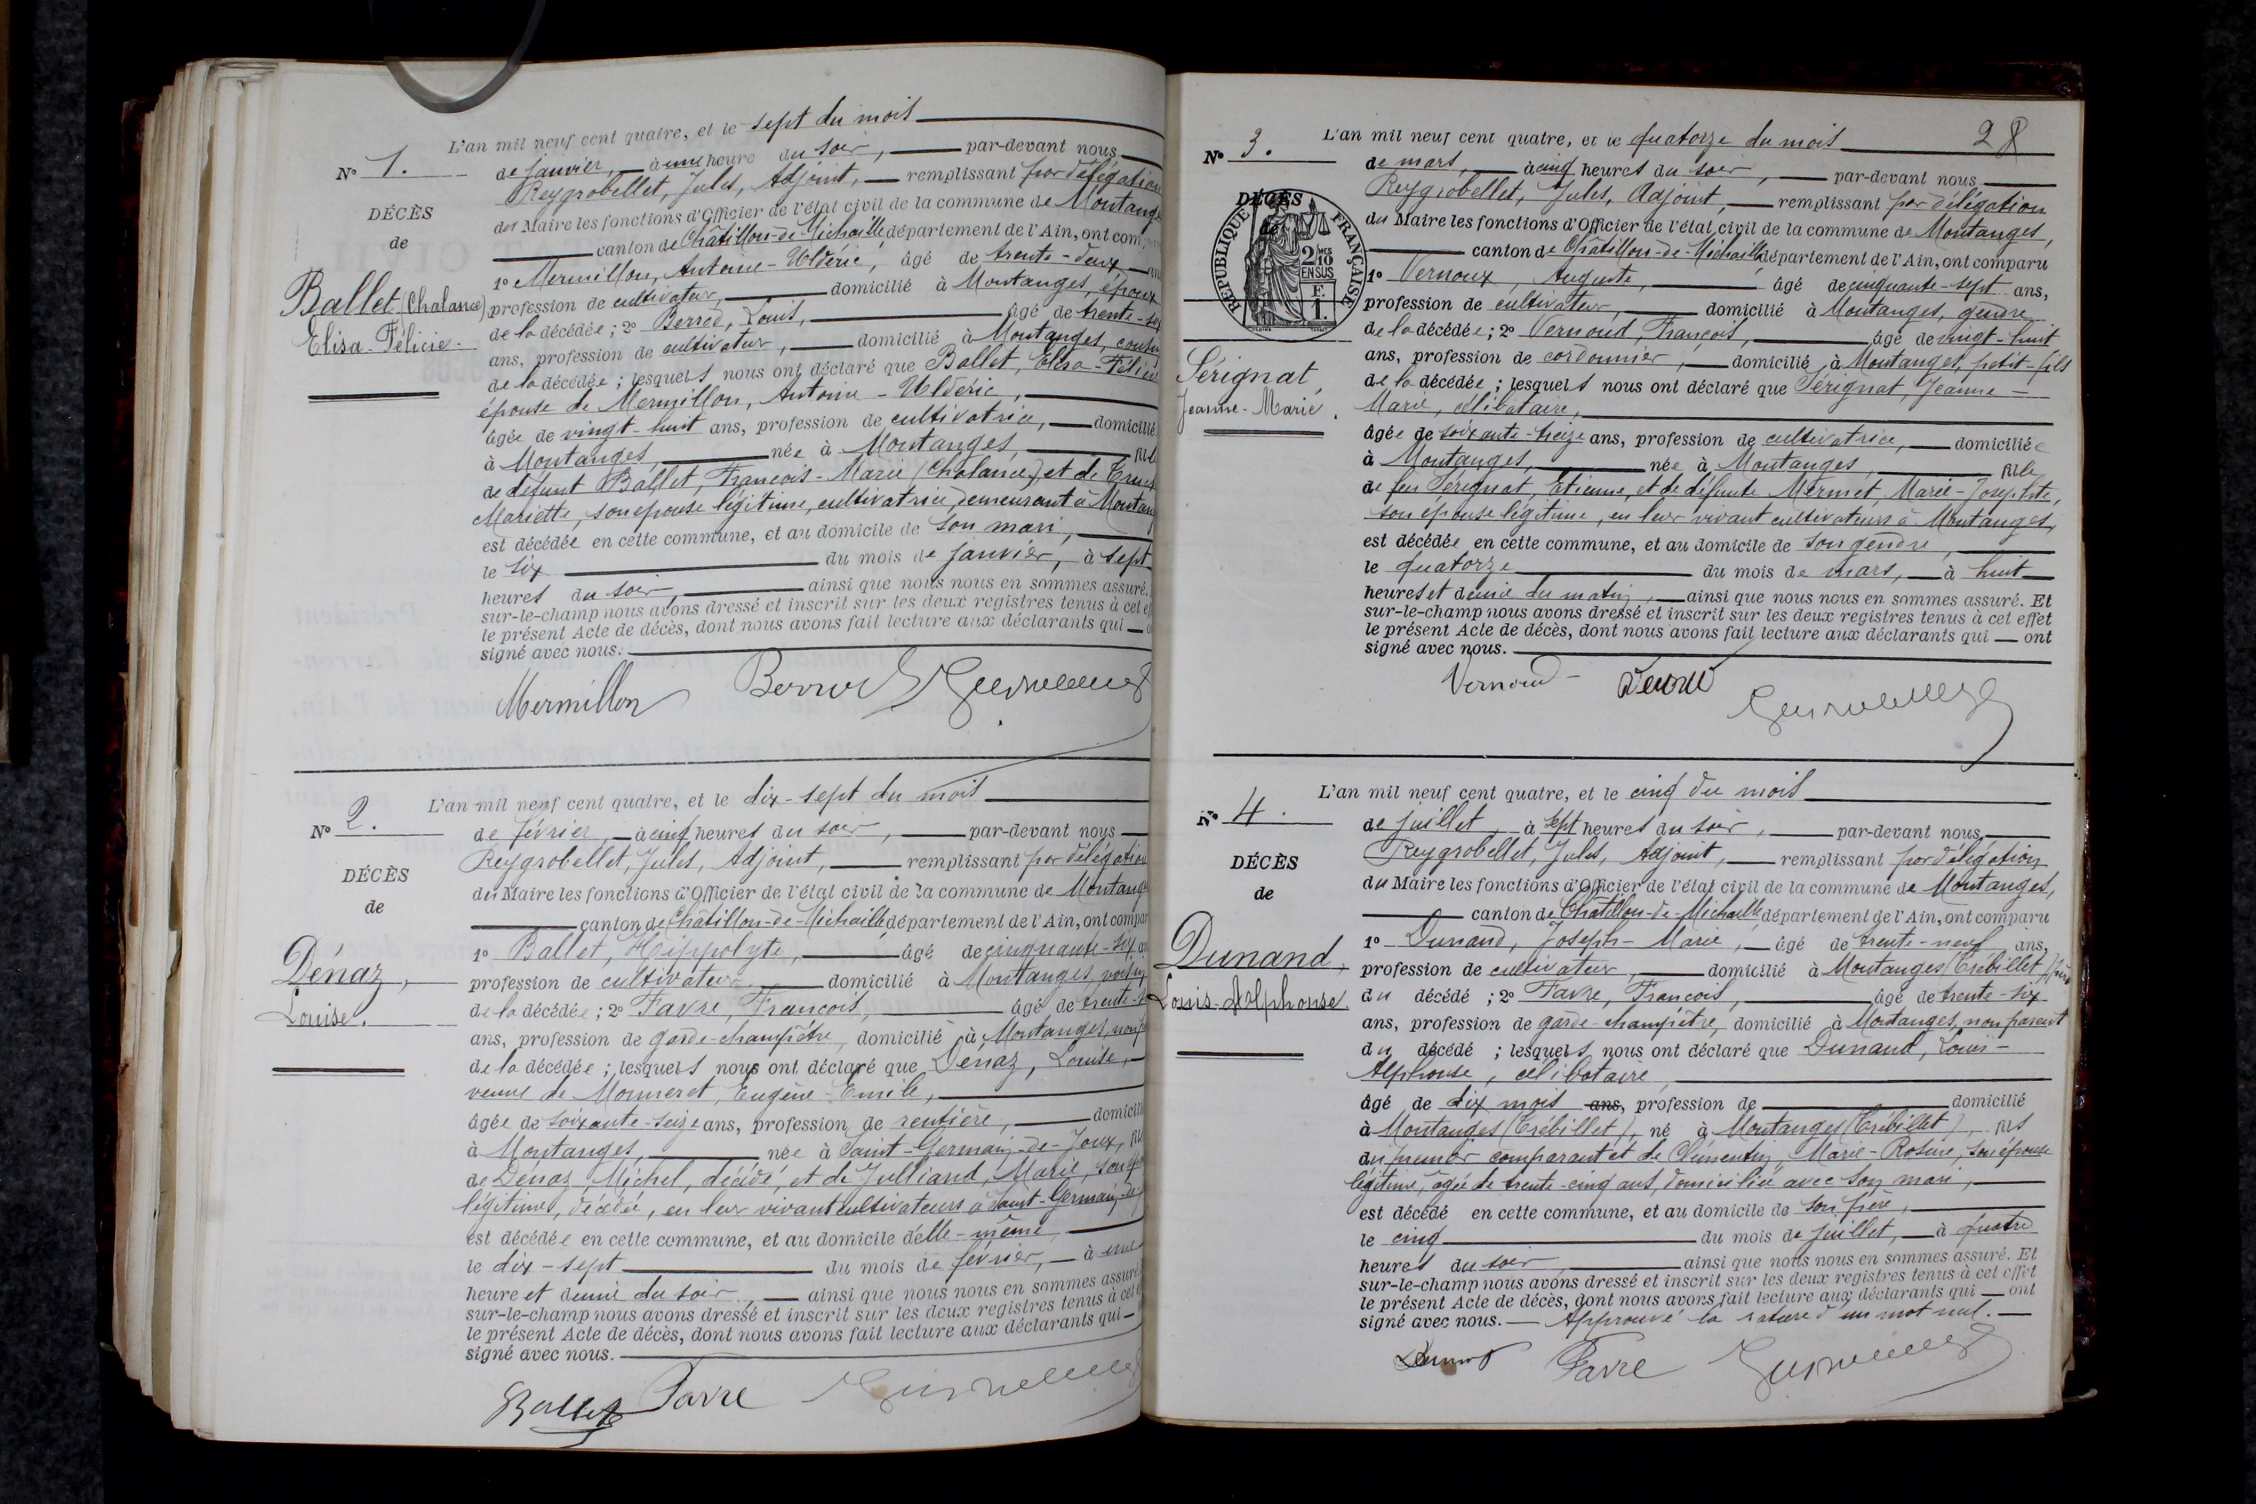 L'an mil neuf cent quatre, et le sept du mois
N° 1.
de janvier, à une heure du soir, par-devant nous
Reygrobellet, Jules, Adjoint, remplissant par délégation
DÉCÈS
du Maire les fonctions d'Officier de l'état civil de la commune de Montang
de
canton de Châtillon-de-Michaille département de l'Ain, ont com
1° Mermillon, Antoine-Uldéric, âgé de trente-deux
Ballet (Chalance)
Elisa-Félicie.
profession de cultivateur, domicilié à Montanges, époux
de la décédée; 2° Berrod, Louis, âgé de trente-
ans, profession de cultivateur, domicilié à Montanges, cousin
de la décédée; lesquels nous ont déclaré que Ballet, Elisa-Félicie
épouse de Mermillon, Antoine-Uldéric,
âgée de vingt-huit ans, profession de cultivatrice, domicilié
à Montanges, née à Montanges, fille
de défunt Ballet, François-Marie (Chalance) et de
Mariette, son épouse légitime, cultivatrice, demeurant à Montan
est décédée en cette commune, et au domicile de son mari,
le six du mois de janvier, à sept
heures du soir, ainsi que nous nous en sommes assuré.
sur-le-champ nous avons dressé et inscrit sur les deux registres tenus à cet e
le présent Acte de décès, dont nous avons fait lecture aux déclarants qui
signé avec nous.
Mermillon Berrod
L'an mil neuf cent quatre, et le dix-sept du mois
N° 2.
de février, à cinq heures du soir, par-devant nous
Reygrobellet, Jules, Adjoint, remplissant par délégation
DÉCÈS
du Maire les fonctions d'Officier de l'état civil de la commune de Montang
de
canton de Châtillon-de-Michaille département de l'Ain, ont compar
1° Ballet, Hippolyte, âgé de cinquante-six
Dénaz,
Louise.
profession de cultivateur domicilié à Montanges, voisin
de la décédée; 2° Favre, François, âgé de trente-s
ans, profession de garde-champêtre, domicilié à Montanges, non p
de la décédée; lesquels nous ont déclaré que Dénaz, Louise,
veuve de Monneret, Eugène-Emile,
âgée de soixante-seize ans, profession de rentière, domicilié
à Montanges, née à Saint-Germain-de-Joux, fill
de Dénaz, Michel, décédé, et de Julliand, Marie, son ép
légitime, décédée, en leur vivant cultivateurs à Saint-Germain-de-
est décédée en cette commune, et au domicile d'elle-même,
le dix-sept du mois de février, à une
heure et demie du soir, ainsi que nous nous en sommes assuré
sur-le-champ nous avons dressé et inscrit sur les deux registres tenus à cet e
le présent Acte de décès, dont nous avons fait lecture aux déclarants qui
signé avec nous.
Ballet Favre
28
L'an mil neuf cent quatre, et le quatorze du mois
N° 3.
de mars, à cinq heures du soir, par-devant nous
Reygrobellet, Jules, Adjoint, remplissant par délégation
DÉCÈS
de
RÉPUBLIQUE FRANÇAISE
2 MES
10
EN SUS
F.
1.
du Maire les fonctions d'Officier de l'état civil de la commune de Montanges,
canton de Châtillon-de-Michaille département de l'Ain, ont comparu
1° Vernoux, Auguste, âgé de cinquante-sept ans,
profession de cultivateur, domicilié à Montanges, gendre
de la décédée; 2° Vernoud, François, âgé de vingt-huit
ans, profession de cordonnier, domicilié à Montanges, petit-fils
Sérignat,
Jeanne-Marie.
de la décédée; lesquels nous ont déclaré que Sérignat, Jeanne-
Marie, célibataire,
âgée de soixante-treize ans, profession de cultivatrice, domiciliée
à Montanges, née à Montanges, fille
de feu Sérignat, Etienne, et de défunte Mermet, Marie-Josephte,
son épouse légitime, en leur vivant cultivateurs à Montanges,
est décédée en cette commune, et au domicile de son gendre,
le quatorze du mois de mars, à huit
heures et demie du matin, ainsi que nous nous en sommes assuré. Et
sur-le-champ nous avons dressé et inscrit sur les deux registres tenus à cet effet
le présent Acte de décès, dont nous avons fait lecture aux déclarants qui ont
signé avec nous.
Vernoud
L'an mil neuf cent quatre, et le cinq du mois
N° 4.
de juillet, à sept heures du soir, par-devant nous,
Reygrobellet, Jules, Adjoint, remplissant par délégation
DÉCÈS
du Maire les fonctions d'Officier de l'état civil de la commune de Montanges,
de
canton de Châtillon-de-Michaille département de l'Ain, ont comparu
1° Dunand, Joseph-Marie, âgé de trente-neuf ans,
Dunand,
Louis-Alphonse.
profession de cultivateur, domicilié à Montanges (Trébillet) père
du décédé; 2° Favre, François, âgé de trente-six
ans, profession de garde-champêtre, domicilié à Montanges, non parent
du décédé; lesquels nous ont déclaré que Dunand, Louis-
Alphonse, célibataire,
âgé de dix mois ans, profession de domicilié
à Montanges (Trébillet), né à Montanges (Trébillet), fils
du premier comparant et de Clémentin, Marie-Rosine, son épouse
légitime, âgée de trente-cinq ans, domiciliée avec son mari,
est décédé en cette commune, et au domicile de son père,
le cinq du mois de juillet, à quatre
heures du soir, ainsi que nous nous en sommes assuré. Et
sur-le-champ nous avons dressé et inscrit sur les deux registres tenus à cet effet
le présent Acte de décès, dont nous avons fait lecture aux déclarants qui ont
signé avec nous. Approuvé la rature d'un mot nul.
Dunand Favre